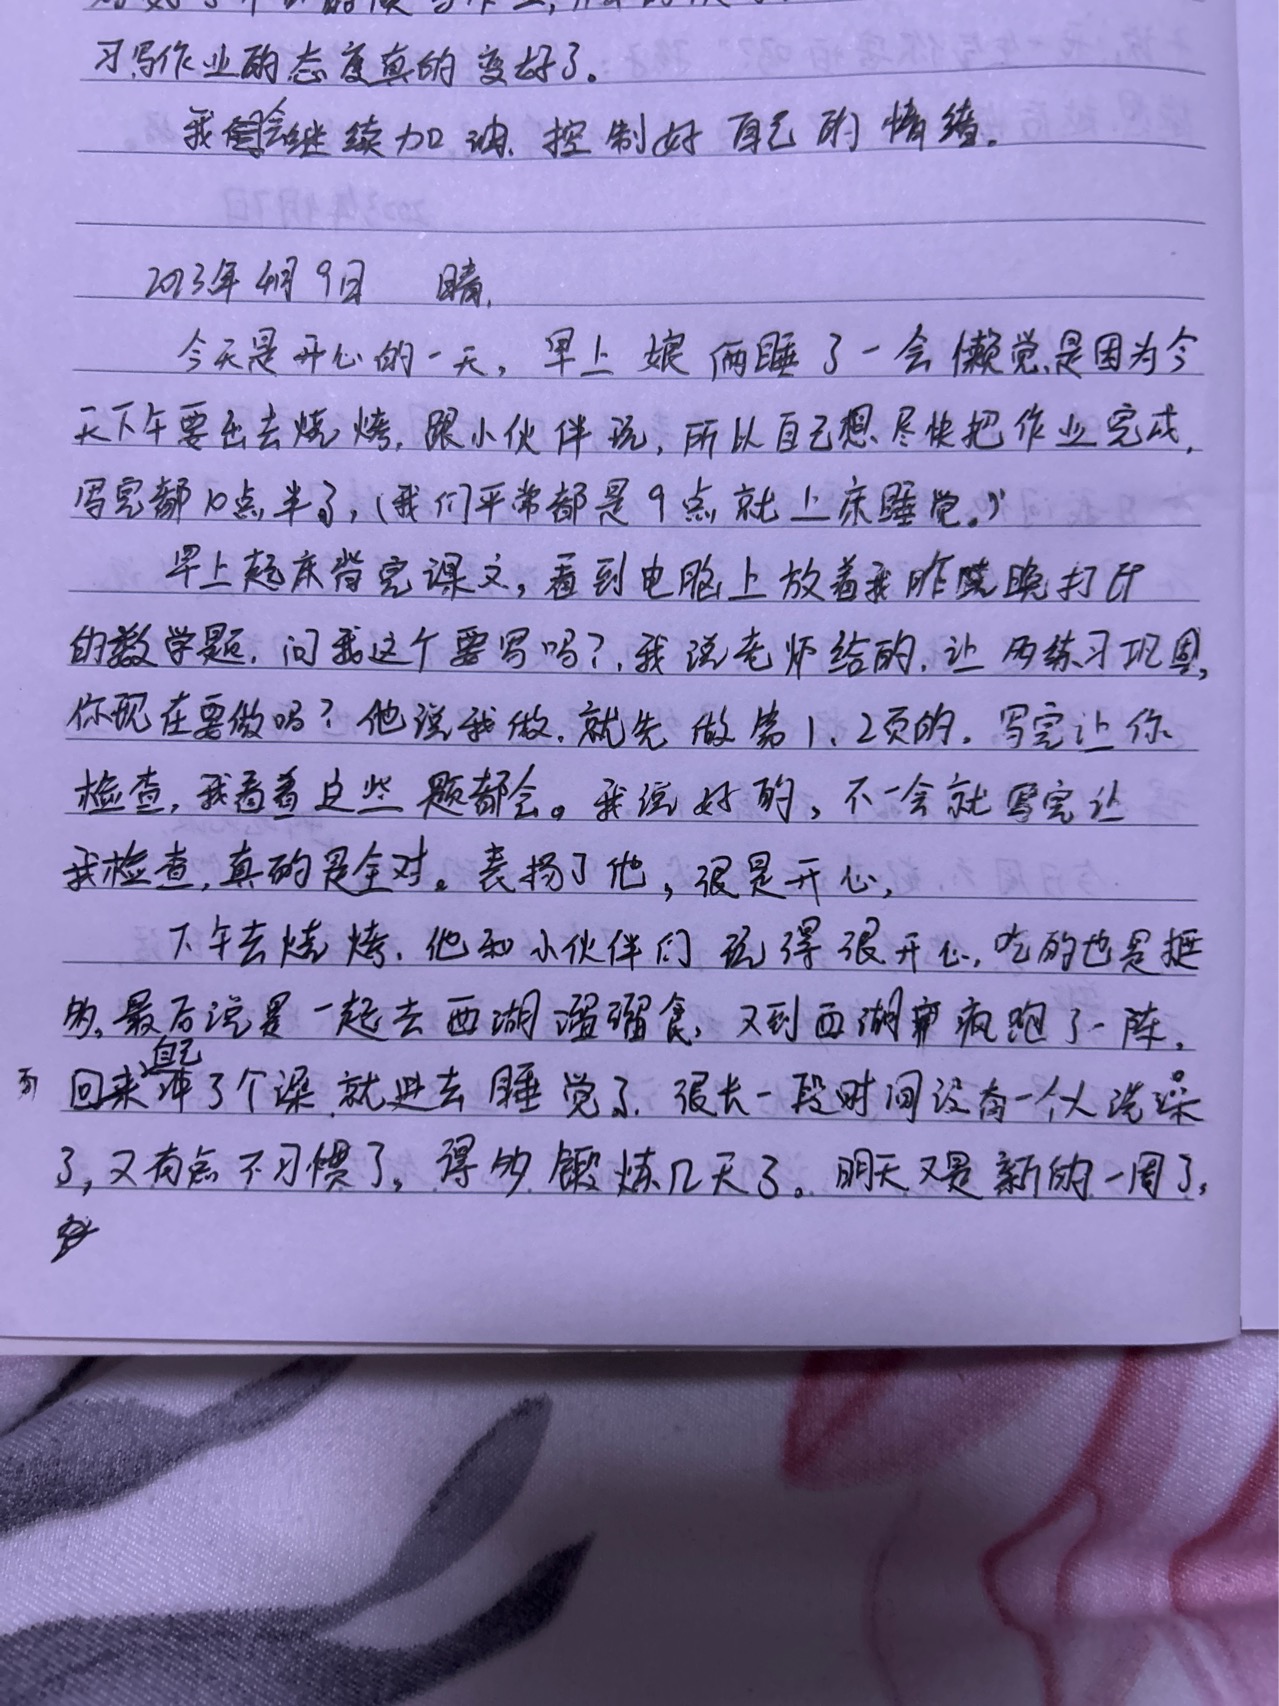 习写作业的态度真的变好了。
我会继续加油、控制好自己的情绪。
2023年4月9日 晴.
今天是开心的一天，早上娘俩睡了一会懒觉、是因为今
天下午要出去烧烤，跟小伙伴玩，所以自己想尽快把作业完成，
写完都10点半了，（我们平常都是9点就上床睡觉。）
早上起床背完课文，看到电脑上放着我昨晚打印
的数学题，问我这个要写吗？，我说老师给的，让多练习巩固，
你现在要做吗？他说我做，就先做第1、2页的，写完让你
检查，我看看这些题都会。我说好的，不一会就写完让
我检查，真的是全对。表扬了他，很是开心，
下午去烧烤，他和小伙伴们玩得很开心，吃的也是挺
多，最后说是一起去西湖溜溜食，又到西湖疯跑了一阵，
回来自己冲了个澡，就进去睡觉了，很长一段时间没有一个人洗澡
了，又有点不习惯了，得多锻炼几天了。明天又是新的一周了，